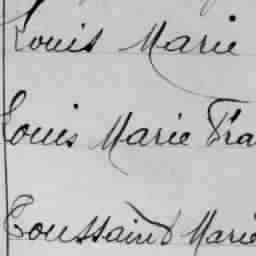 Louis Marie
Louis Marie Fra
Toussaint Marie